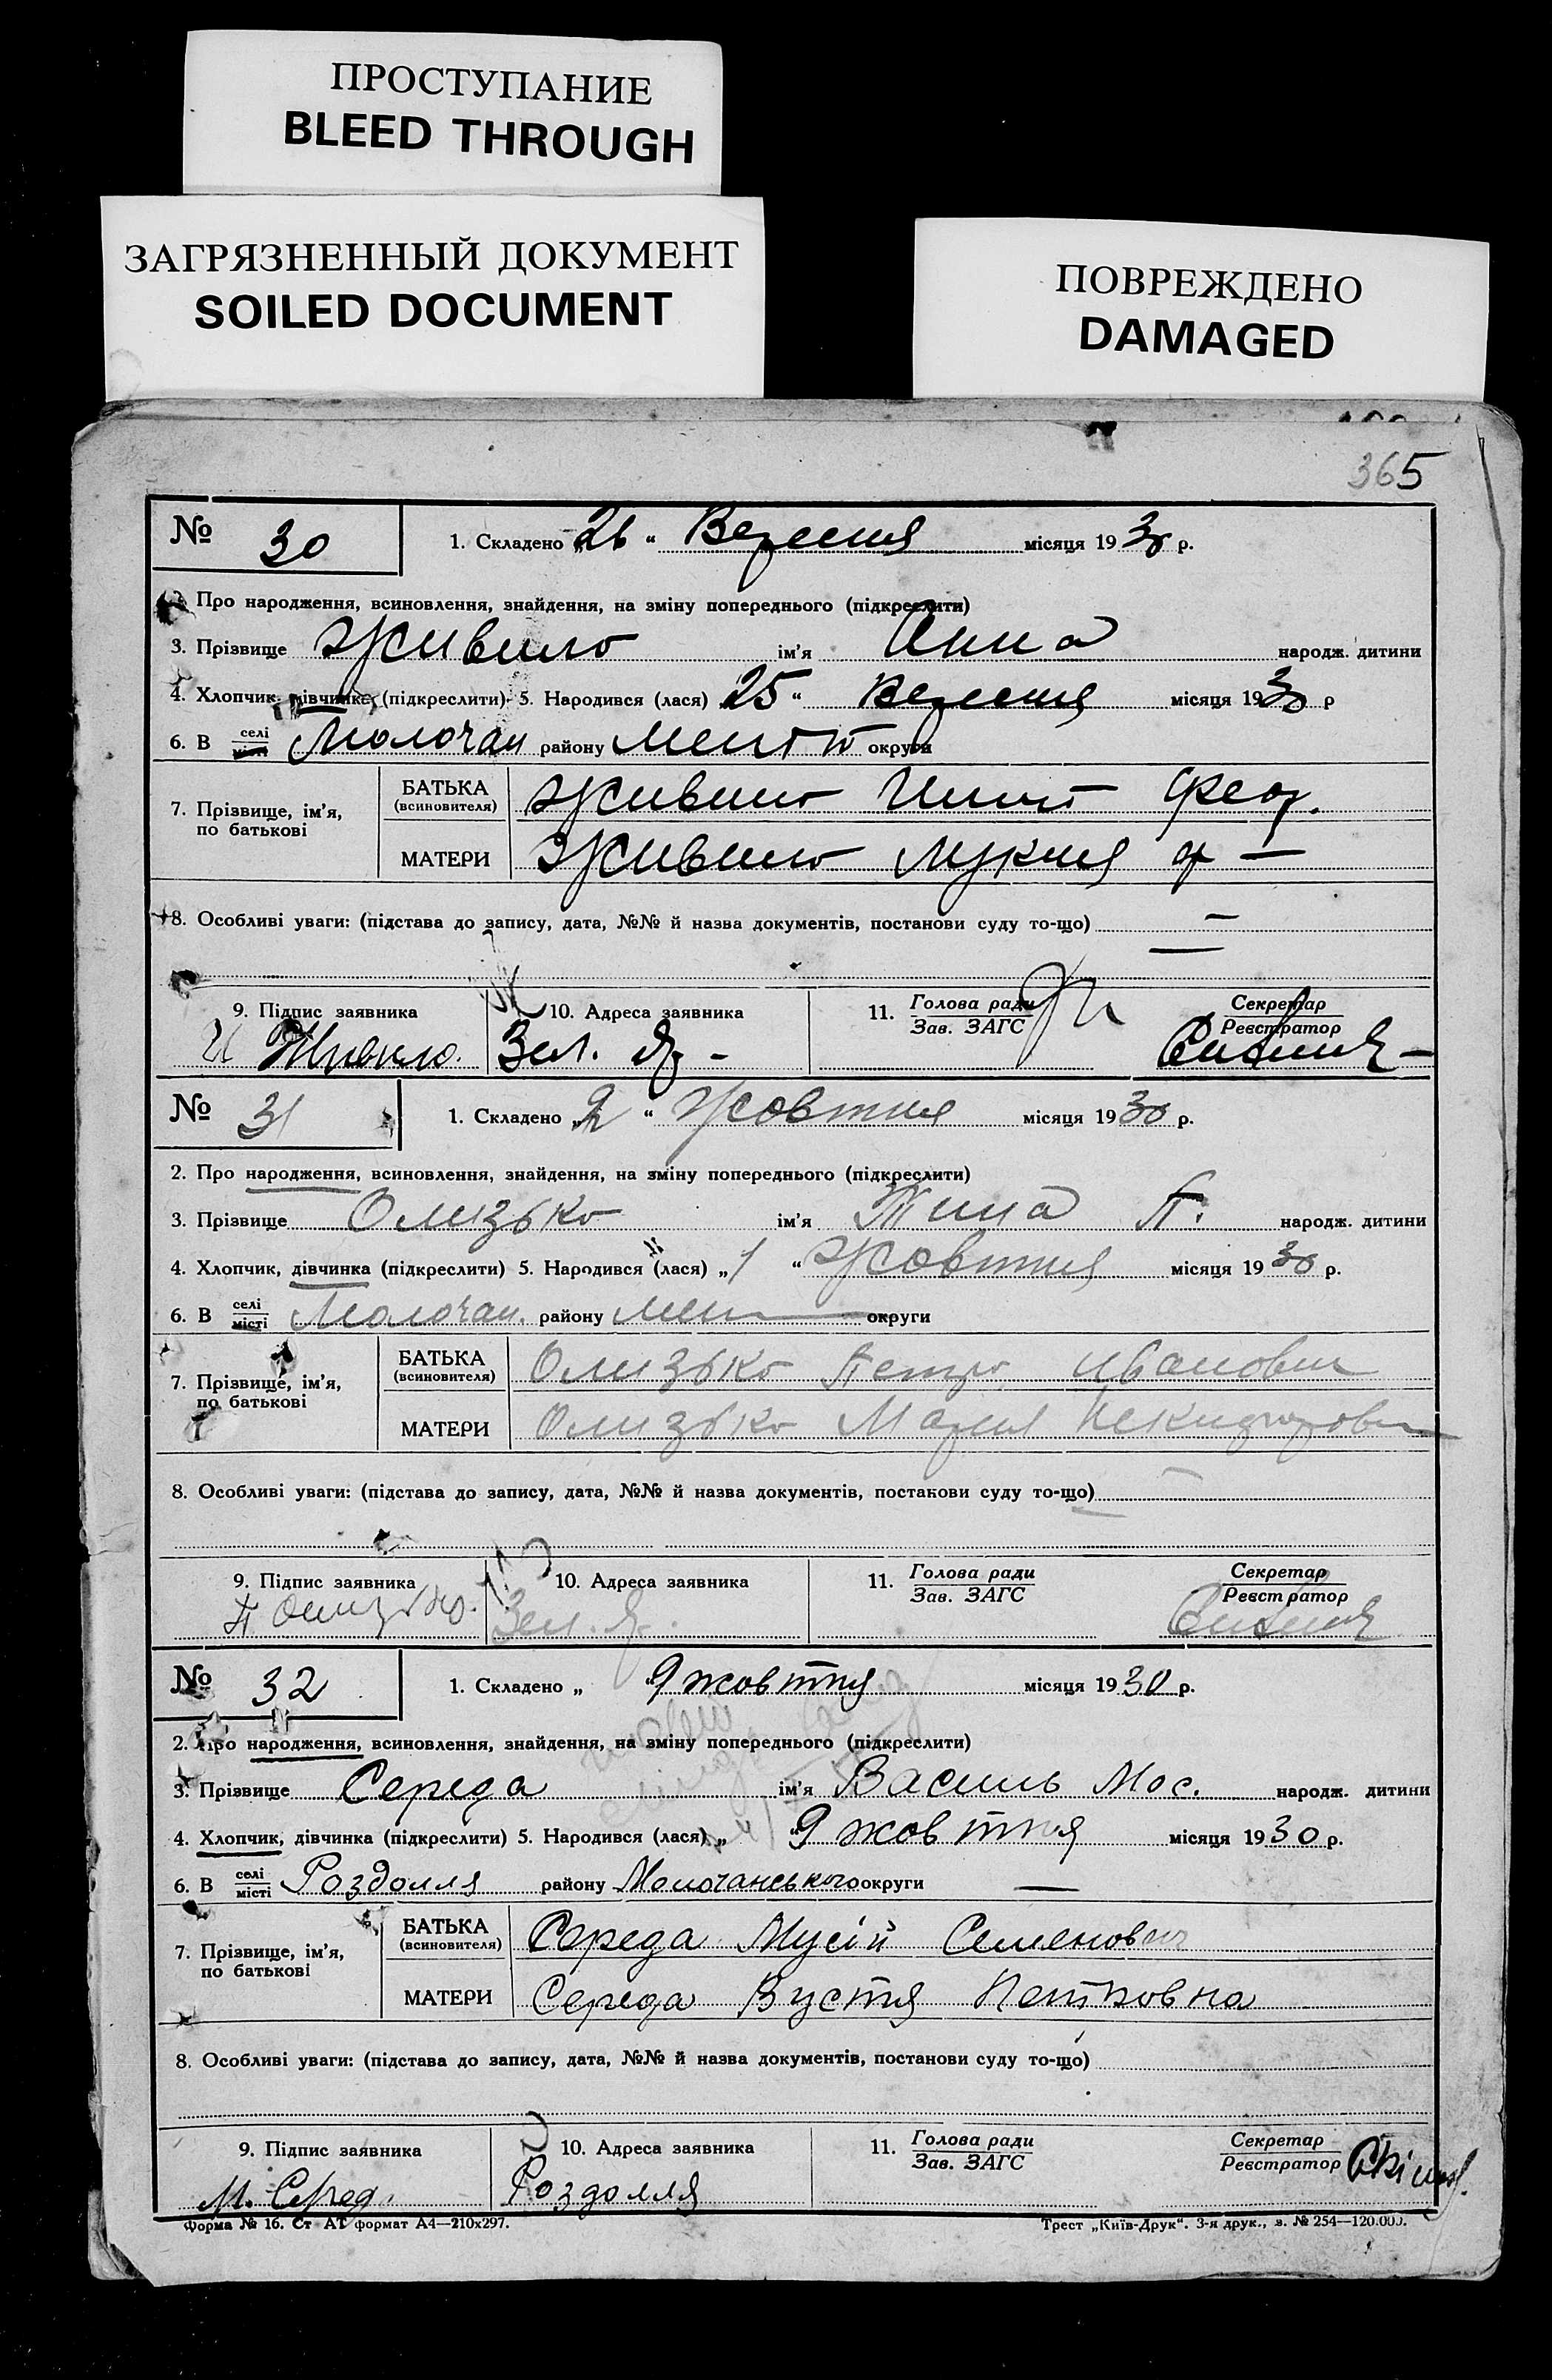 ПРОСТУПАНИЕ
BLEED THROUGH
ЗАГРЯЗНЕННЫЙ ДОКУМЕНТ
SOILED DOCUMENT
ПОВРЕЖДЕНО
DAMAGED
365
№ 30 1. Складено „26“ Вересня місяця 1930 р.
Про народження, всиновлення, знайдення, на зміну попереднього (підкреслити)
3. Прізвище Живило ім'я Анна народж. дитини
4. Хлопчик, дівчинка (підкреслити) 5. Народився (лася) 25“ Вересня місяця 1930 р
6. В селі місті Молочан району округи
7. Прізвище, ім'я, по батькові
БАТЬКА (всиновителя) Живило Фед.
МАТЕРИ Живило Лукия
8. Особливі уваги: (підстава до запису, дата, №№ й назва документів, постанови суду то-що) —
9. Підпис заявника 10. Адреса заявника 11. Голова ради Зав. ЗАГС Секретар Реєстратор
Зел.
№ 31 1. Складено „2“ Жовтня місяця 1930 р.
2. Про народження, всиновлення, знайдення, на зміну попереднього (підкреслити)
3. Прізвище Олизько ім'я П. народж. дитини
4. Хлопчик, дівчинка (підкреслити) 5. Народився (лася) „1“ Жовтня місяця 1930 р.
6. В селі місті Молочан. району округи
7. Прізвище, ім'я, по батькові
БАТЬКА (всиновителя) Олизько Петро Иванович
МАТЕРИ Олизько Мария
8. Особливі уваги: (підстава до запису, дата, №№ й назва документів, постанови суду то-що)
9. Підпис заявника 10. Адреса заявника 11. Голова ради Зав. ЗАГС Секретар Реєстратор
П Олизько. Зел.
№ 32 1. Складено „ “9 жовтня місяця 1930 р.
2. Про народження, всиновлення, знайдення, на зміну попереднього (підкреслити)
3. Прізвище Середа ім'я Василь Мос. народж. дитини
4. Хлопчик, дівчинка (підкреслити) 5. Народився (лася) „ “9 жовтня місяця 1930 р.
6. В селі місті Роздолля району Молочанського округи —
7. Прізвище, ім'я, по батькові
БАТЬКА (всиновителя) Середа Мусій Семенович
МАТЕРИ Середа Вустя Петровна
8. Особливі уваги: (підстава до запису, дата, №№ й назва документів, постанови суду то-що)
9. Підпис заявника 10. Адреса заявника 11. Голова ради Зав. ЗАГС Секретар Реєстратор
М. Серед. Роздолля
Форма № 16. Ст АТ формат А4—210х297. Трест „Київ-Друк“. 3-я друк., з. № 254—120.000.